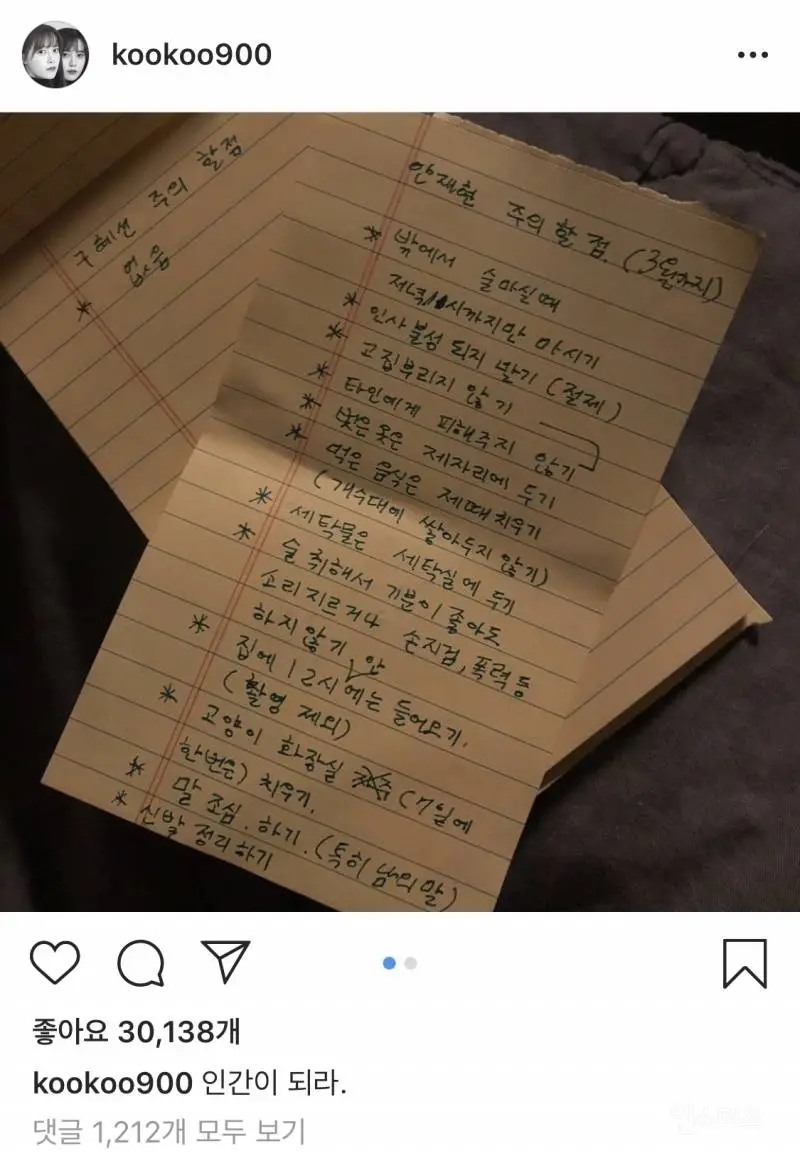 kookoo900
구혜선 주의 할점
* 없음
안재현 주의할 점. (3월까지)
* 밖에서 술마실때
저녁 11시까지만 마시기
* 인사불성 되지 말기 (절제)
* 고집부리지 않기
* 타인에게 피해주지 않기
* 벗은 옷은 제자리에 두기
* 먹은 음식은 제때 치우기
(개수대에 쌓아두지 않기)
* 세탁물은 세탁실에 두기
* 술 취해서 기분이 좋아도
소리 지르거나 손지검, 폭력 등
하지 않기
* 집에 12시 안에는 들어오기.
(촬영 제외)
* 고양이 화장실 (7일에
한번은) 치우기.
* 말 조심. 하기. (특히 남의 말)
* 신발 정리하기
좋아요 30,138개
kookoo900 인간이 되라.
댓글 1,212개 모두 보기
인스티즈